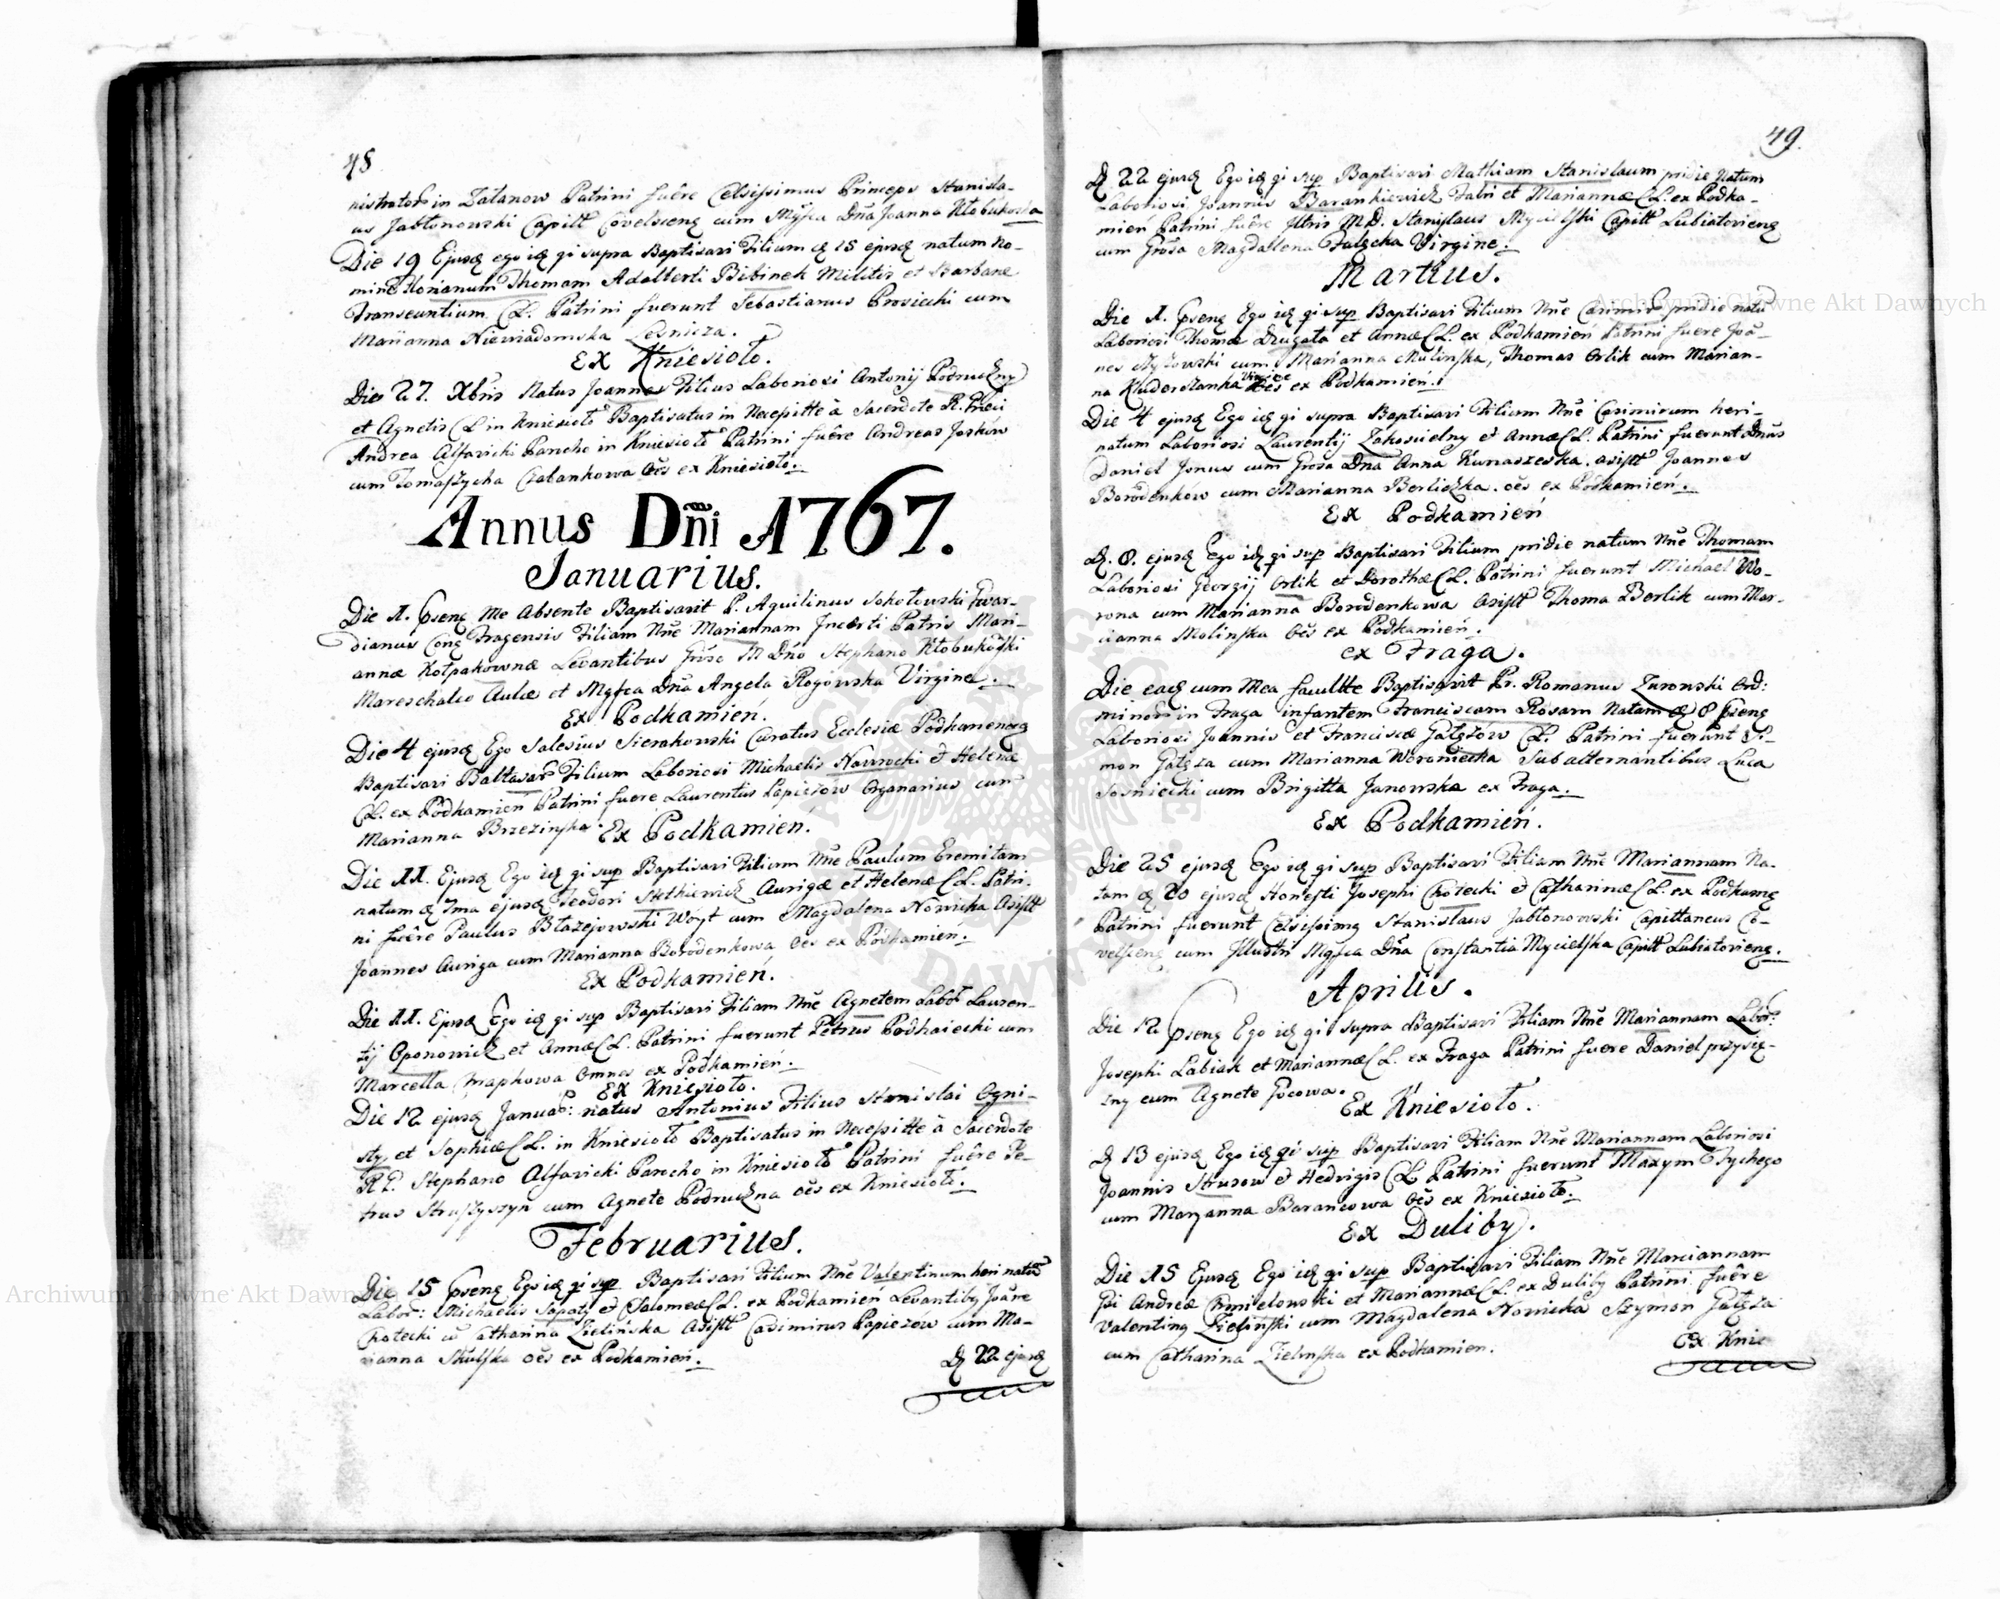 48
nistrator in Zalanow Patrini fuêre Celsissimus Princeps Stanisla-
us Jabłonowski Capitt Covelseng cum Mgfca Dña Joanna Kłobukoska
Die 19 Ejusq ego idq qi supra Baptisavi Filium q 18 ejusq natum No-
mine Thomam Adalberti Bibinek Militis et Barbaræ
Transeuntium CL. Patrini fuerunt Sebastianus Prosiecki cum
Marianna Niewiadomska Lesnicza.
Ex Kniesioło.
Die 27. Xbris Natus Joannes Filius Laboriosi Antonij Podruczny
et Agnetis CL in Kniesioło Baptisatus in Necessitte à Sacerdote R. Pricii
Andrea Alfaricki Parocho in Kniesioło Patrini fuêre Andreas Jaskow
cum Tomaszycha Czabankowa Oẽs ex Kniesioło.
Annus Dñi 1767.
Januarius.
Die 1. Psenq Me Absente Baptisavit P. Aquilinus Sokołowski Gwar-
dianus Conq Fragensis Filiam Nñe Mariannam Incerti Patris Mari-
annæ Kołpakownæ Levantibus Grôso M Dño Stephano Kłobukoski
Mareschalco Aulæ et Mgfca Dña Angela Rogowska Virgine.
Ex Podkamień.
Die 4 ejusq Ego Salesius Sierakowski Curatus Ecclesiæ Podkamenenq
Baptisavi Baltasar Filium Laboriosi Michaelis Nawrocki et Helenæ
CL. ex Podkamień Patrini fuere Laurentius Papieżow Organarius cum
Marianna Brzezinska.
Ex Podkamien.
Die 11. Ejusq Ego idq qi sup Baptisavi Filium Nñe Paulum Eremitam
natum q 7ma ejusq Teodori Aurigæ et Helenæ CL. Patri-
ni fuêre Paulus Błażejowski Woyt cum Magdalena Nowicka Asistt
Joannes Auriga cum Marianna Borodenkowa Oẽs ex Podkamień.
Ex Podkamień.
Die 11. Ejusq Ego idq qi sup Baptisavi Filiam Nñe Agnetem Labor Lauren-
tij Oponowicz et Annæ CL. Patrini fuerunt Petrus Podhaiecki cum
Marcella Omnes ex Podkamień.
Ex Kniesioło.
Die 12 ejusq Januar: natus Antonius Filius Stanislai Ogni-
sty, et Sophiæ CL. in Kniesioło Baptisatus in Necessitte à Sacerdote
R P. Stephano Alfaricki Parocho in Kniesioło Patrini fuêre Pe-
trus Straszyszyn cum Agnete Podruczna Oẽs ex Kniesioło.
Februarius.
Die 15 Psenq Ego idq qi sup Baptisavi Filium Nñe Valentinum heri natũ
Labor: Michaelis Sapaty et Salomeæ CL. ex Podkamień Levantibq Joãne
Chotecki cũ Catharina Zielińska Asistt Casimirus Papieżow cum Ma-
rianna Skulska Oẽs ex Podkamień.
D 22 ejusq
49.
D 22 ejusq Ego idq qi sup Baptisavi Mathiam Stanislaum pridie Natum
Laboriosi Joannis Barankiewicz Fabri et Mariannæ CL. ex Podka-
mień Patrini fuêre Illtris M.D. Stanislaus Mycielski Capitt Lubiatovienq
cum Grôsa Magdalena Virgine.
Martius.
Die 1. Psenq Ego idq qi sup Baptisavi Filium Nñe Casimir pridie natũ
Laboriosi Thomæ Długota et Annæ CL. ex Podkamień Patrini fuere Joã-
nes cum Marianna Mulinska, Thomas Orlik cum Marian-
na Virgine Oẽs ex Podkamień.
Die 4 ejusq Ego idq qi supra Baptisavi Filium Nñe Casimirum heri-
natum Laboriosi Laurentij Zakoscielny et Annæ CL. Patrini fuerunt Dñus
Daniel Jonus cum Grôsa Dña Anna Kunaszeska. asistt Joannes
Borodenków cum Marianna Berliczka. oẽs ex Podkamień.
Ex Podkamień
D. 8. ejusq Ego idq qi sup Baptisavi Filium pridie natum Nñe Thomam
Laboriosi Georgij Orlik et Dorotheæ CL. Patrini fuerunt Michael Wo-
rona cum Marianna Borodenkowa Asistt Thoma Berlik cum Mar-
ianna Molinska Oẽs ex Podkamień.
ex Fraga.
Die eadq cum Mea facultte Baptisavit Pr. Romanus Zuronski Ord:
minor in Fraga infantem Franciscam Rosam Natam q 8 Psenq
Laboriosi Joannis et Franciscæ Gałęzów CL. Patrini fuerunt Si-
mon Gałęza cum Marianna Woroniecka Subalternantibus Luca
Sosniecki cum Brigitta Janowska ex Fraga.
Ex Podkamień.
Die 25 ejusq Ego idq qi sup Baptisavi Filiam Nñe Mariannam Na-
tam q 20 ejusq Honesti Josephi Chotecki et Catharinæ CL. ex Podkamq
Patrini fuerunt Celsissimq Stanislaus Jabłonowski Capittaneus Co-
velsenq cum Illustri Mgfca Dña Constantia Mycielska Capitt Lubiatovienq.
Aprilis.
Die 12 Psenq Ego idq qi supra Baptisavi Filiam Nñe Mariannam Labor:
Josephi Labiak et Mariannæ CL. ex Fraga Patrini fuere Daniel przysię-
zny cum Agnete Gocowa.
Ex Kniesioło.
D 13 ejusq Ego idq qi sup Baptisavi Filiam Nñe Mariannam Laboriosi
Joannis Strusow et Hedvigis CL Patrini fuerunt Maxym Tychego
cum Maryanna Barańcowa Oẽs ex Kniesioło.
Ex Duliby.
Die 15 Ejusq Ego idq qi sup Baptisavi Filiam Nñe Mariannam
Gsi Andreæ Chmielowski et Mariannæ CL. ex Duliby Patrini fuêre
Valentinq Zieliński cum Magdalena Nowicka Szymon Gałęza
cum Catharina Zielinska ex Podkamien.
Ex Knie